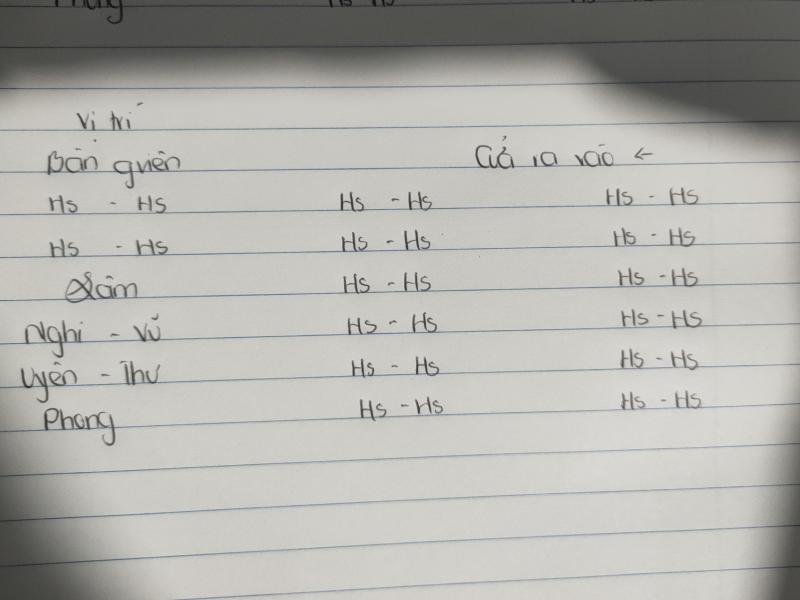 Phong Hs Hs Hs
Vị trí
Bàn quiên Cửa ra vào ←
Hs - Hs Hs - Hs Hs - Hs
Hs - Hs Hs - Hs Hs - Hs
Lâm Hs - Hs Hs - Hs
Nghi - Vũ Hs - Hs Hs - Hs
Uyên - Thư Hs - Hs Hs - Hs
Phong Hs - Hs Hs - Hs